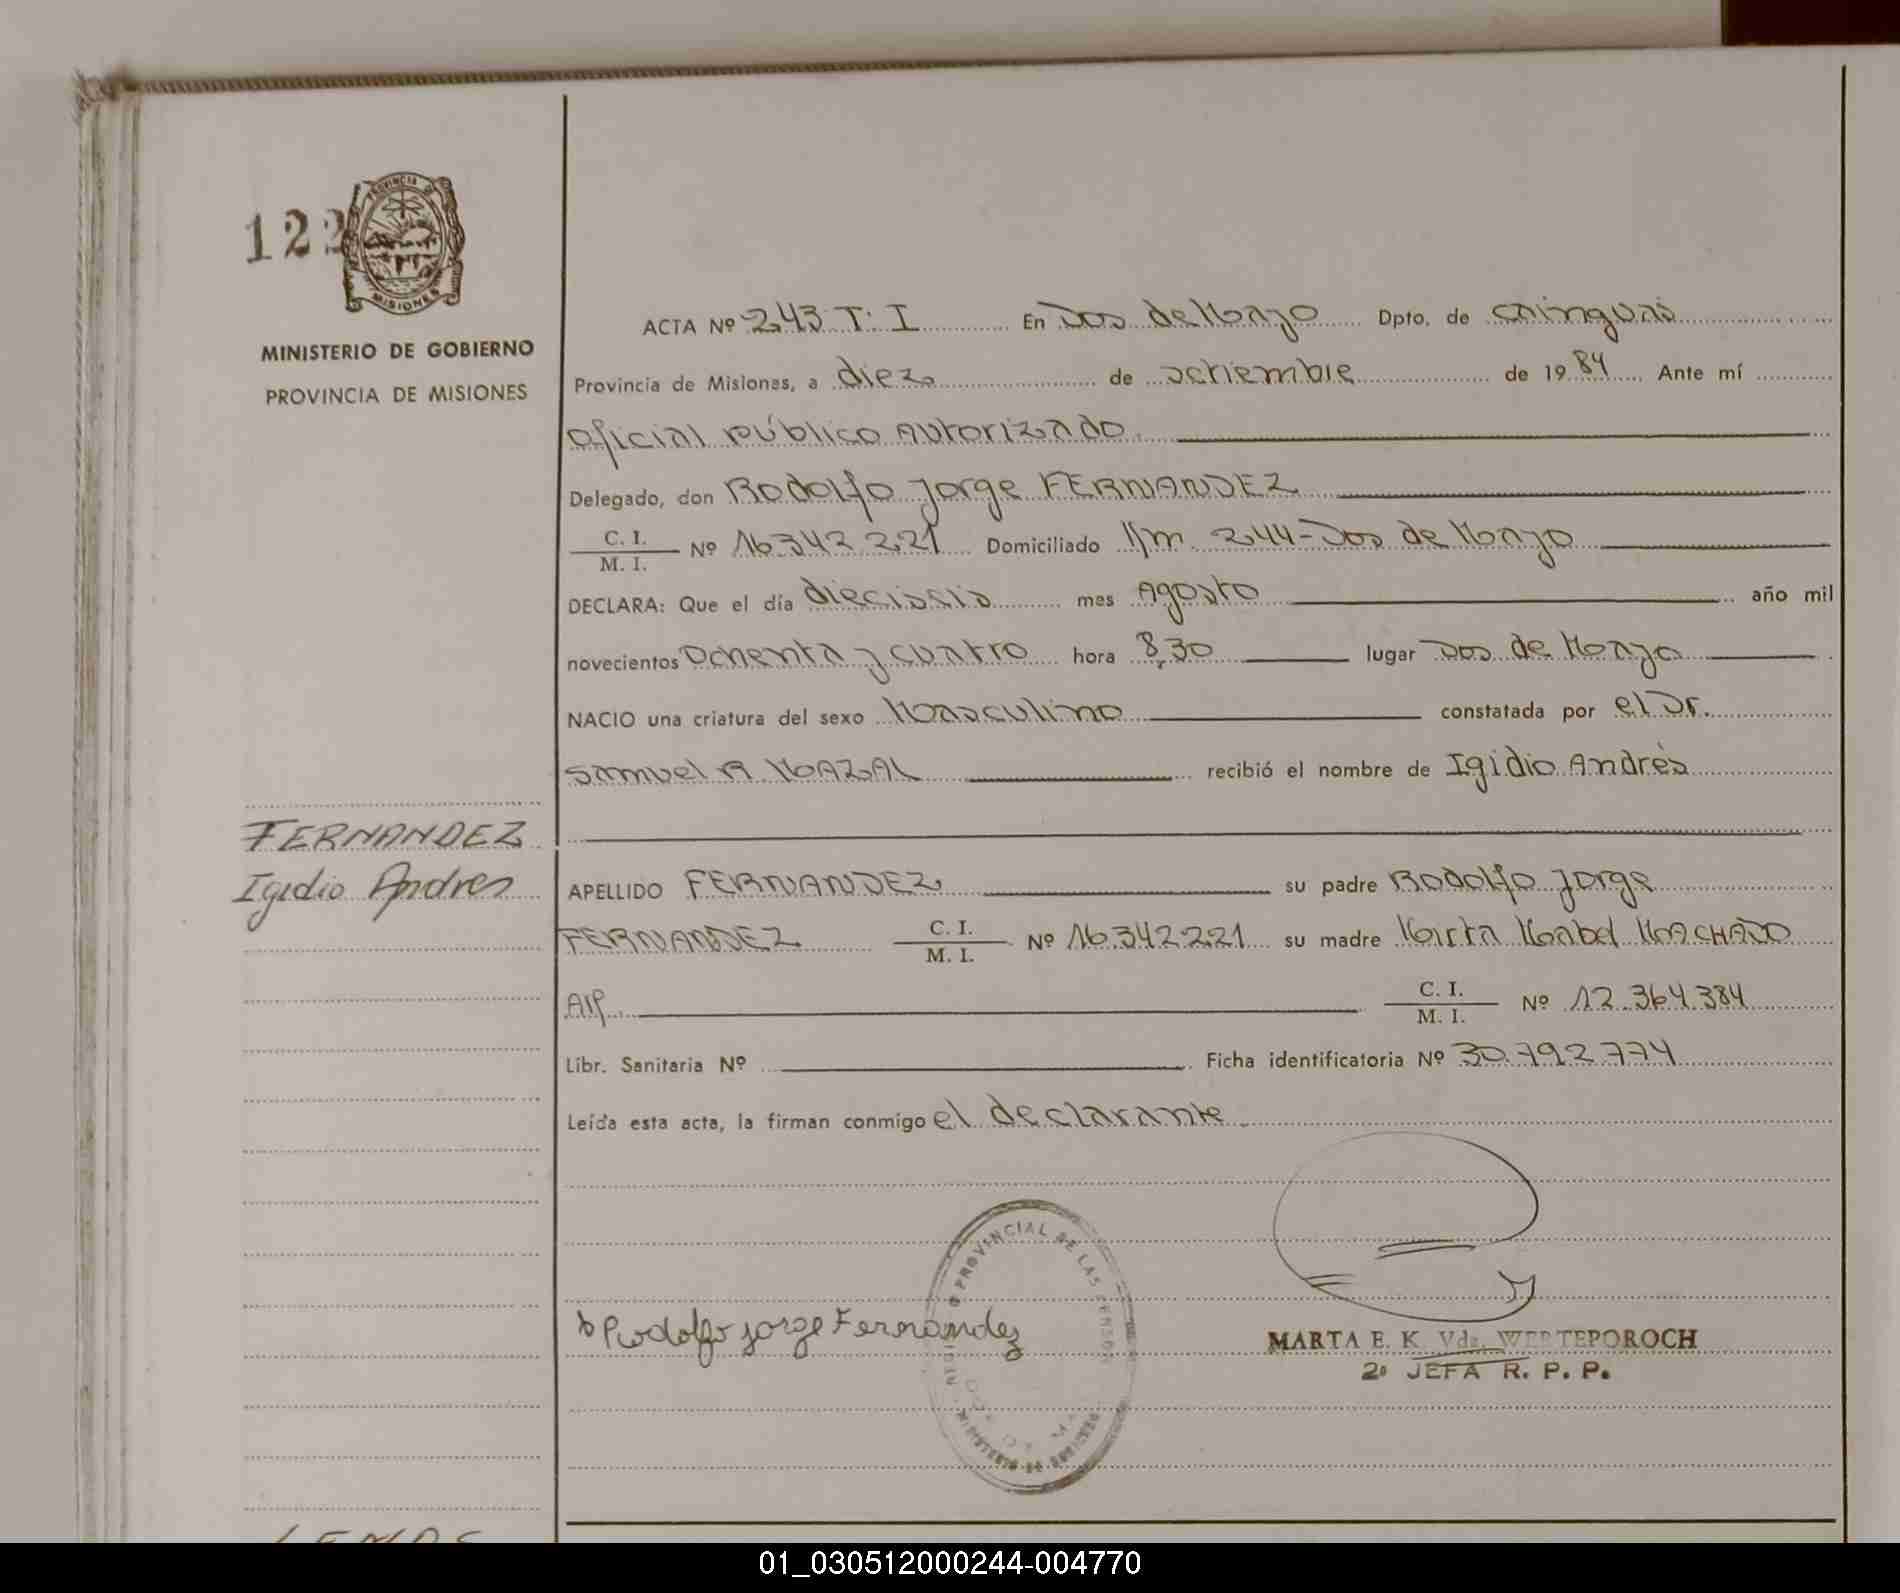 122
PROVINCIA DE
MISIONES
MINISTERIO DE GOBIERNO
PROVINCIA DE MISIONES
ACTA Nº 243 T. I En Dos de Mayo Dpto. de Cainguás
Provincia de Misiones, a diez de setiembre de 1984 Ante mí
Oficial Público Autorizado.
Delegado, don Rodolfo Jorge FERNANDEZ
C. I.
M. I. Nº 16.342.221 Domiciliado Km. 244-Dos de Mayo
DECLARA: Que el día dieciseis mes Agosto año mil
novecientos Ochenta y cuatro hora 8,30 lugar Dos de Mayo
NACIO una criatura del sexo Masculino constatada por el Dr.
Samuel A. MAZAL recibió el nombre de Igidio Andrés
FERNANDEZ
Igidio Andres
APELLIDO FERNANDEZ su padre Rodolfo Jorge
FERNANDEZ C. I.
M. I. Nº 16.342.221 su madre Mirta Mabel MACHADO
C. I.
M. I. Nº 12.364.384
Libr. Sanitaria Nº Ficha identificatoria Nº 30.792.774
Leída esta acta, la firman conmigo el declarante.
PROVINCIAL DE LAS PERSONAS
MINISTERIO DE GOBIERNO
Rodolfo Jorge Fernandez
MARTA E. K. Vda. WERTEPOROCH
2º JEFA R. P. P.
01_030512000244-004770